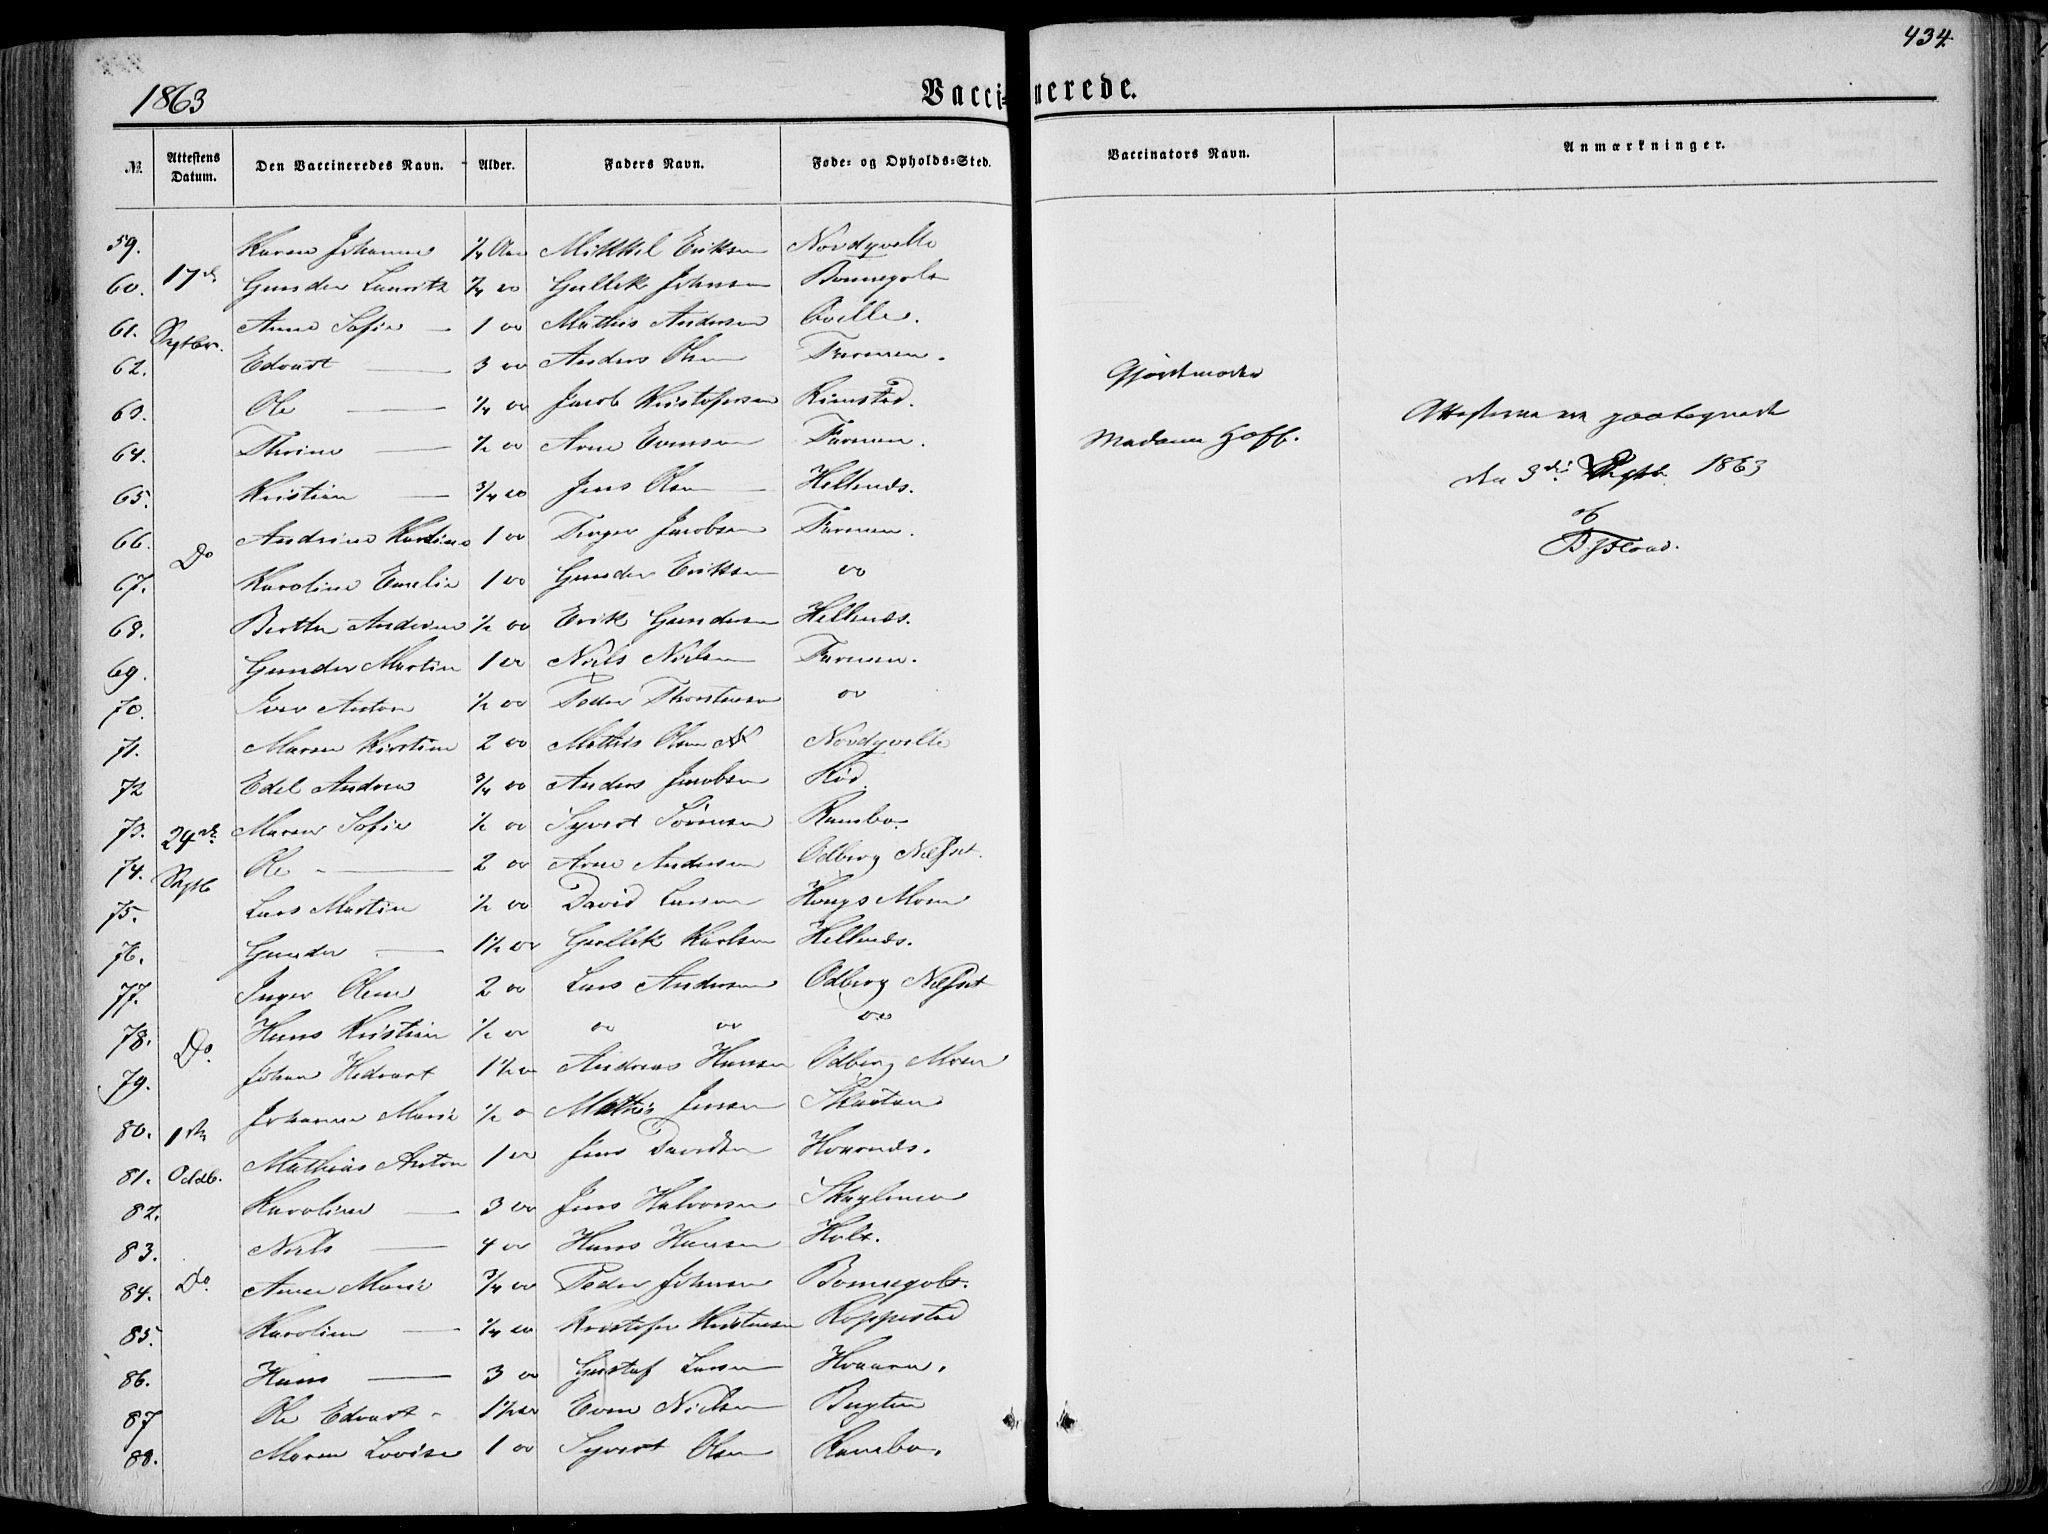 434
1863
Vaccinerede.
№ Attestens Datum. Den Vaccineredes Navn. Alder. Faders Navn. Føde- og Opholds-Sted. Vaccinators Navn. Anmærkninger.
59. Karen Johanne 1/4 Aar Mikkel Eriksen Nordqvelle
60. 17de Gunder Lauritz 3/4 do Gullik Johnsen Bommegolt
61. Septbr. Anne Sofie — 1 do Mathis Andersen Qvelle.
62. Edvart — 3 do Anders Olsen Farmen.
63. Ole — 1/4 do Jacob Kristofersen Rimstad.
64. Thrine — 1/2 do Arne Evensen Farmen.
65. Kristian — 3/4 do Jens Olsen — Hellends.
66. Do Andrine Kristine 1 do Jacobsen Farmen.
67. Karoline Emelie 1 do Gunder Eriksen do
68. Berthe Andrine 1/2 do Erik Gundersen Hellends.
69. Gunder Martin 1 do Niels Nielsen Farmen.
70. Iver Anton 1/2 do Peder Thorstensen do
71. Maren Kirstine 2 do Mathis Olsen Nordqvelle
72 Edel Andrea 3/4 do Anders Jacobsen Rød
73. 24de Maren Sofie 1/2 do Syvert Sørensen Ramsbo.
74. Septb Ole — 2 do Arne Andersen Odberg
75. Lars Martin 1/2 do David Larsen Moen
76. Gunder — 1 1/2 do Gullik Karlsen Hellends.
77. Inger Oline 2 do Lars Andersen Odberg
78. Do. Hans Kristian 1/2 do do do do
79. Johan Hedvart 1 1/2 do Andreas Hansen Odberg Moen
80. 1ste Johanne Marie 1/2 do Mathis Jensen
81. Octb. Mathias Anton 1 do Jens Davidsen
82. Karoline — 3 do Jens Halvorsen
83. Niels — 4 do Hans Hansen Holt.
84. Do. Anne Marie 3/4 do Peder Johnsen Bommegolt.
85. Karoline — 1/4 do Kristofer Kristensen Roppestad
86. Hans — 3 do Gustaf Larsen
87 Ole Edvart - 1 1/2 do Even Nielsen Bugten
88. Maren Lovise 1 do Syvert Olsen Ramsbo.
Gjordemoder
Madame Hoff.
Attesterne ere paategnede
den 3die 1863
af